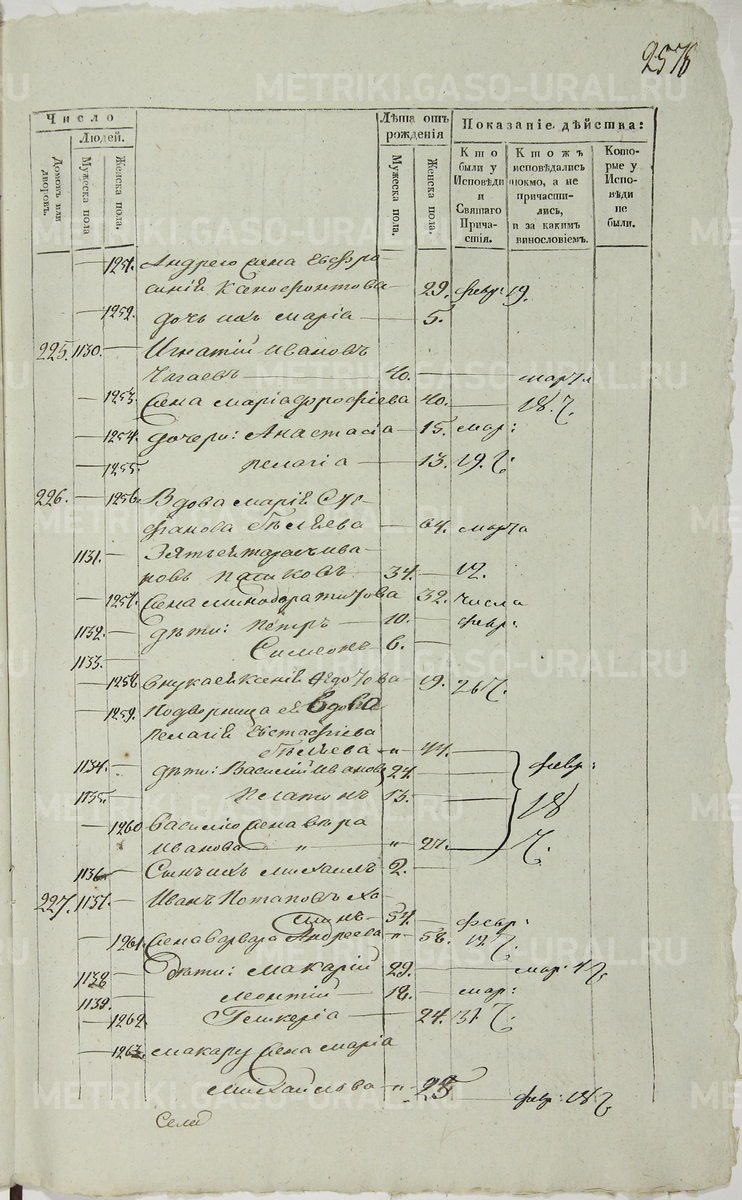 257
Число
Людей.
Домовъ или дворовъ.
Мужеска пола
Женска пола.
Лѣта отъ рожденія
Мужеска пола.
Женска пола.
Показаніе дѣйства:
Кто были у Исповѣди и Святаго Причастія.
Ктожъ исповѣдались токмо, а не причастились, и за какимъ винословіемъ.
Которые у Исповѣди не были.
1251. Андрею жена Евфро
синія Ксенофонтова 29. февр: 19.
1252. дочь ихъ марія 5.
225. 1130. Игнатій Ивановъ
Чагаевъ 40. марта
1253. жена марія дорофѣева 40. 18. ч.
1254. дочери: Анастасія 15. мар:
1255. пелагія 13. 19. ч:
226. 1256. Вдова марія Сте
фанова Бѣляева 64. марта
1131. Зять ея тарасъ ива
новъ 34. 12.
1257. жена минодора титова 32. числа
1132. дѣти: петръ 10. февр:
1133. Симеонъ 6.
1258. внука ея ксенія Федотова 19. 26 ч.
1259. подворница ея вдова
пелагія Евстафіева
Бѣляева " 44.
1134. дѣти: Василій иванов 24. февр:
1135. платонъ 13. 18
1260 василію жена вѣра
иванова " " 27. ч.
1136 сынъ ихъ михаилъ 2.
227. 1137. Иванъ Потаповъ
54. февр:
1261. жена варвара Андреева " 58. 12 ч.
1138 дѣти: макарій 29. мар: 4 ч
1139. леонтій 18. мар:
1262. Гликерія 24. 31. ч
1263. макару жена марія
михайлова " 23. февр: 18 ч
METRIKI.GASO-URAL.RU